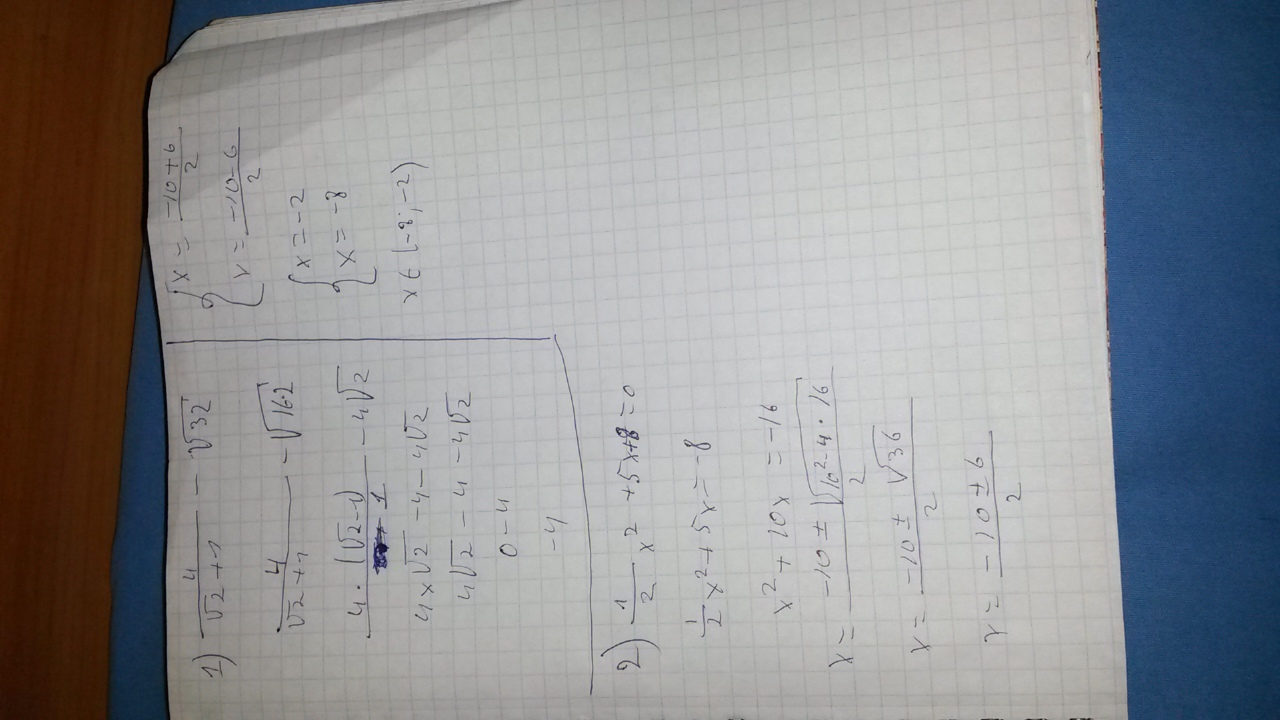 1) 4/(√2+1) − √32
4/(√2+1) − √(16·2)
4·(√2−1)/1 − 4√2
4×√2 − 4 − 4√2
4√2 − 4 − 4√2
0−4
−4
2) 1/2 x² + 5x+8=0
1/2 x² + 5x = −8
x² + 10x = −16
x = (−10 ± √(10²−4·16))/2
x = (−10 ± √36)/2
x = (−10 ± 6)/2
{ x = (−10+6)/2
x = (−10−6)/2
{ x = −2
x = −8
x ∈ {−8; −2}